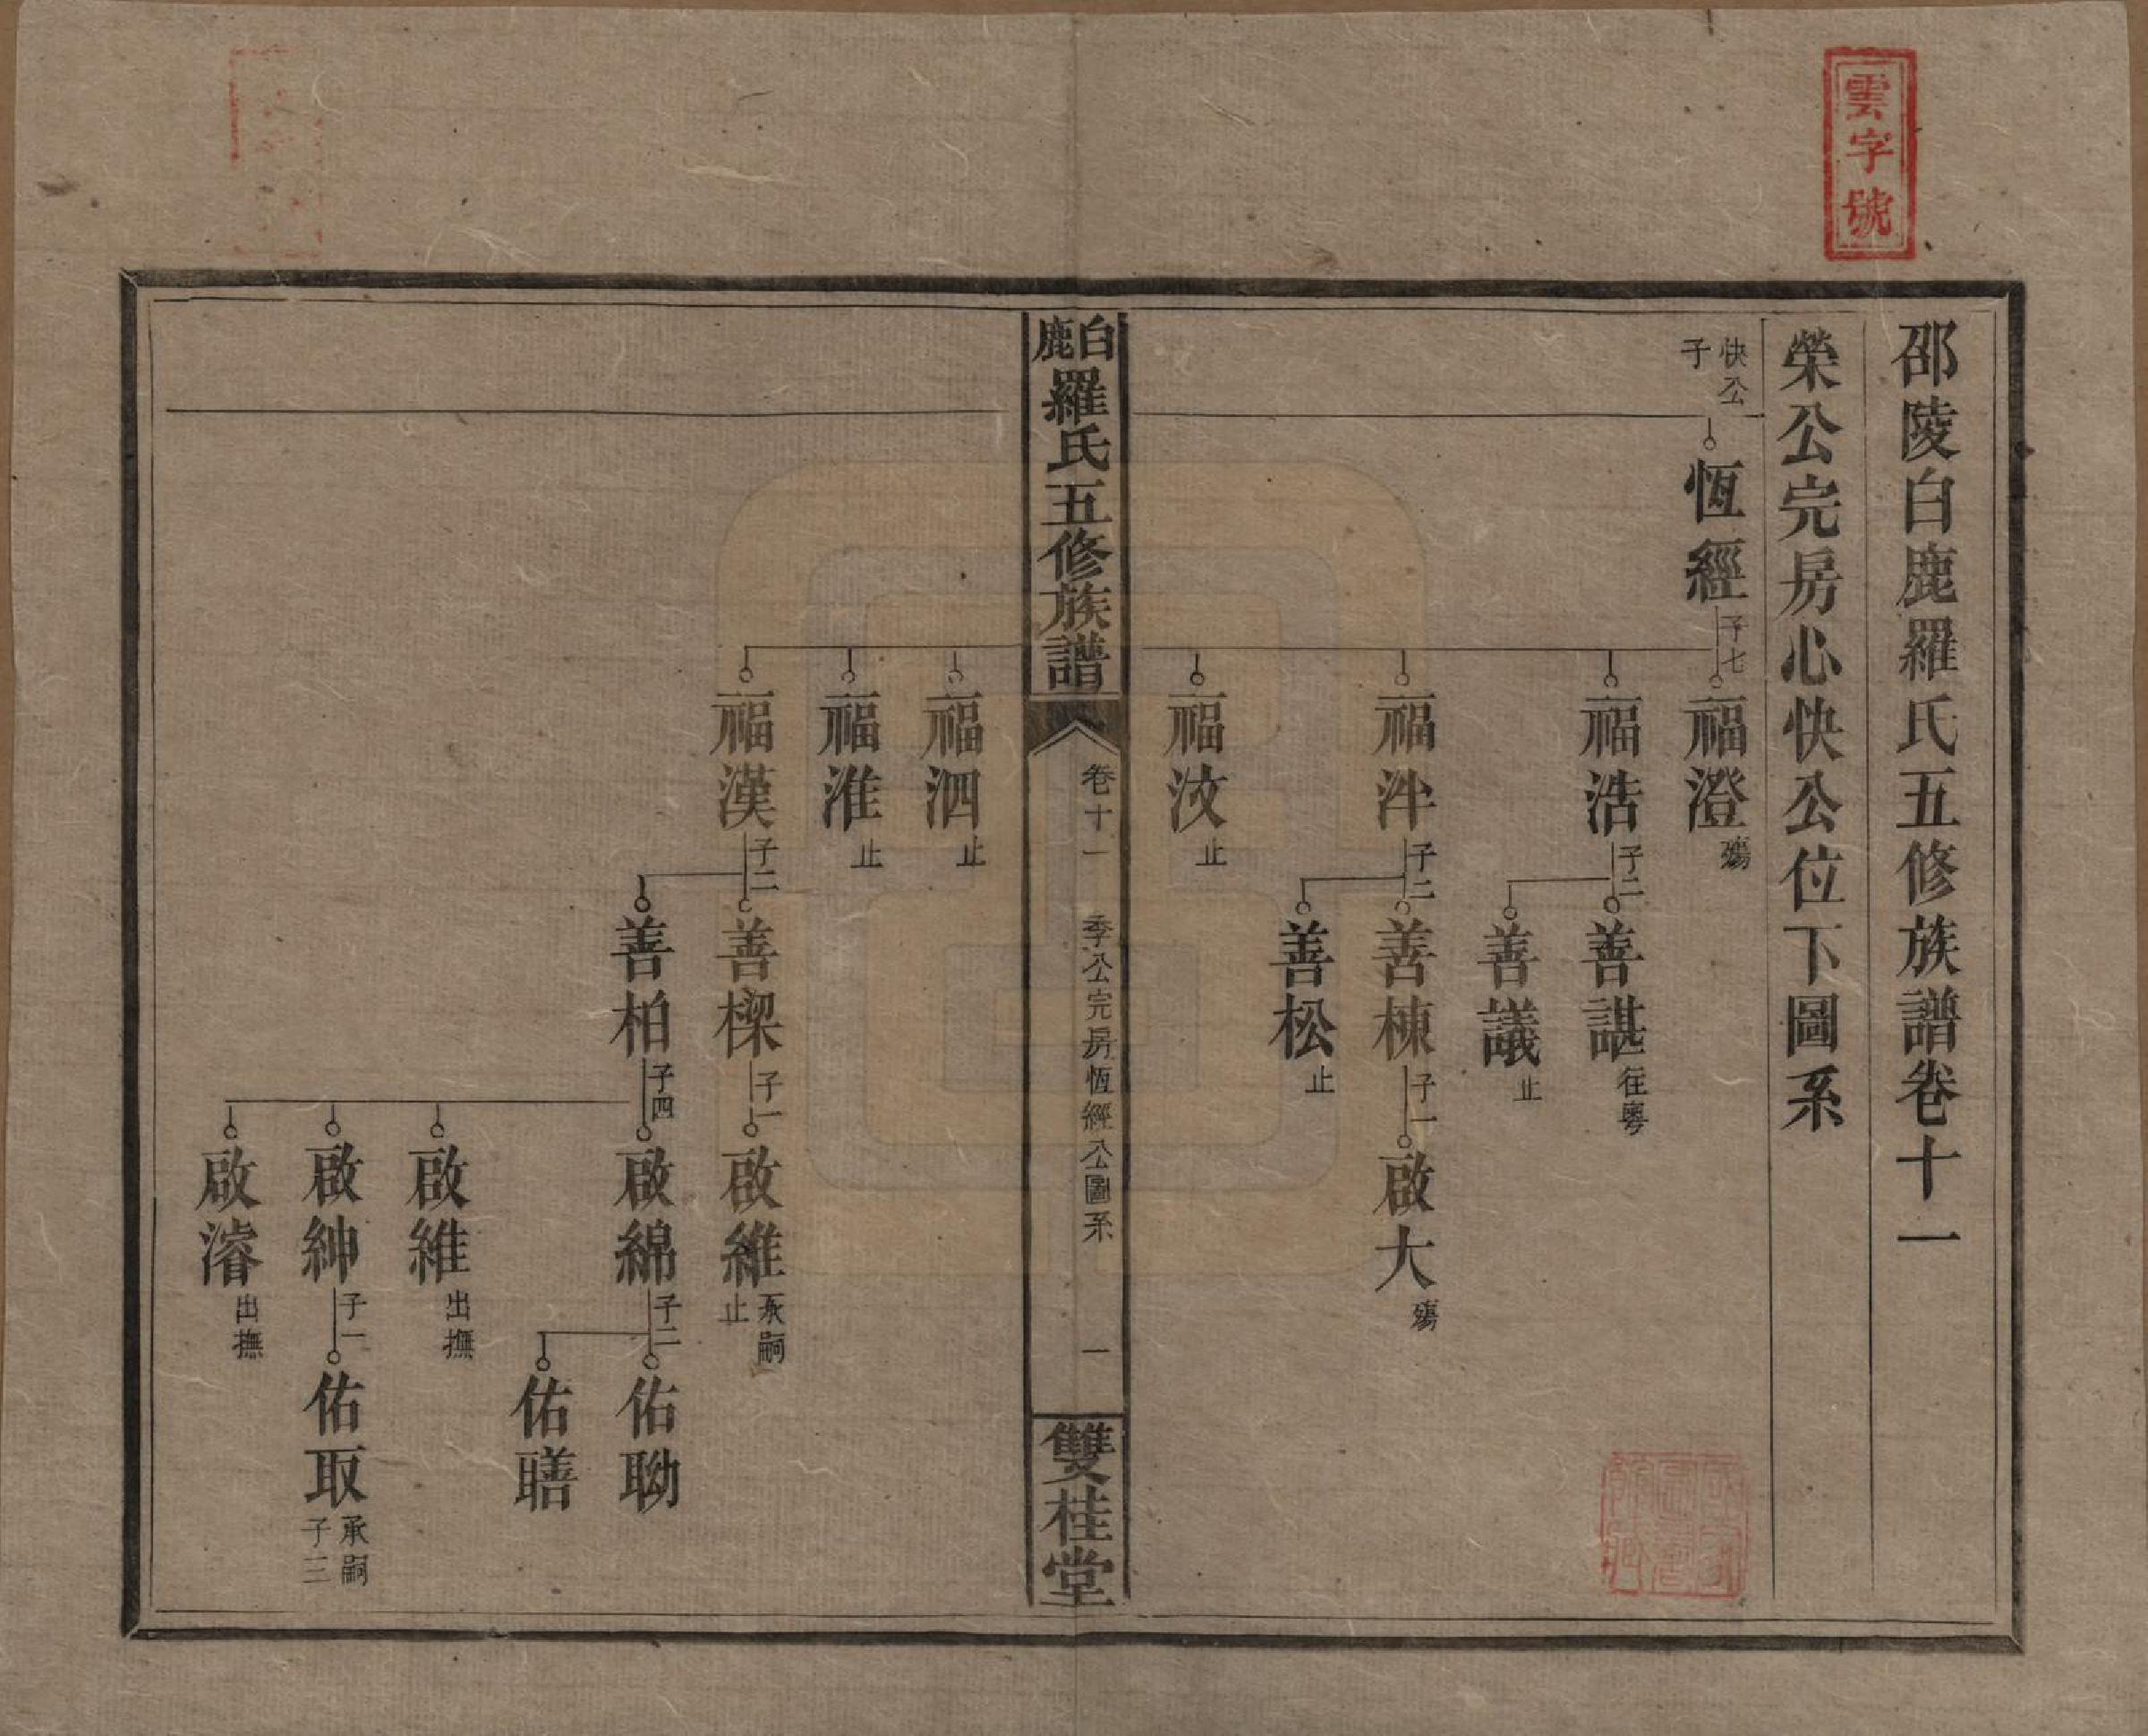 雲字號
邵陵白鹿羅氏五修族譜卷十一
榮公完房心快公位下圖系
快公子
恆經 子七
福澄 殤
福浩 子二
善諶 往粵
善議 止
福泮 子二
善棟 子一
啟大 殤
善松 止
福汶 止
白鹿羅氏五修族譜
卷十一
季公完房恆經公圖系
一
雙桂堂
福泗 止
福淮 止
福漢 子二
善樑 子一
啟維 承嗣止
善柏 子四
啟綿 子二
佑聈
佑聸
啟維 出撫
啟紳 子一
佑取 承嗣子三
啟濬 出撫